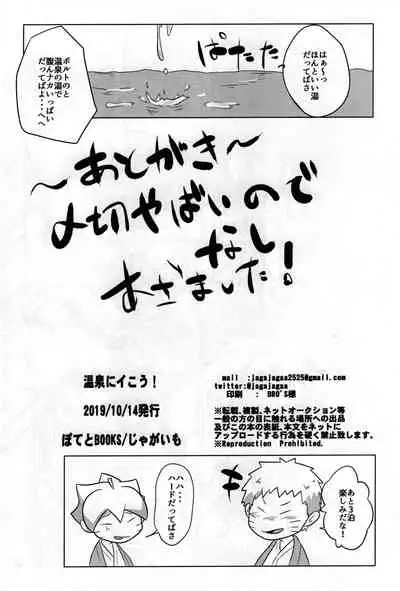 はぁ〜っ
ほんといい湯
だってばさ
ぱたた
〜あとがき〜
〆切やばいので
なし
あざました!
温泉にイこう!
2019/10/14発行
ぽてとBOOKS/じゃがいも
mail :jagajagaa2525@gmail.com
twitter:@jagajagaa
印刷 : BRO'S様
※転載、複製、ネットオークション等
一般の方の目に触れる場所への出品
及びこの本の表紙、本文をネットに
アップロードする行為を硬く禁止致します。
※Reproduction Prohibited.
あと3泊
楽しみだな!
ハハ・・・
ハードだってばさ